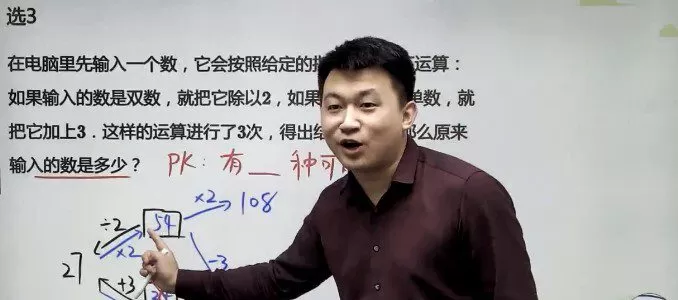 选3
在电脑里先输入一个数，它会按照给定的指 运算：
如果输入的数是双数，就把它除以2，如果 单数，就
把它加上3．这样的运算进行了3次，得出结 那么原来
输入的数是多少？ PK：有__种可
÷2 54 ×2 108
27 ×2 -3
+3